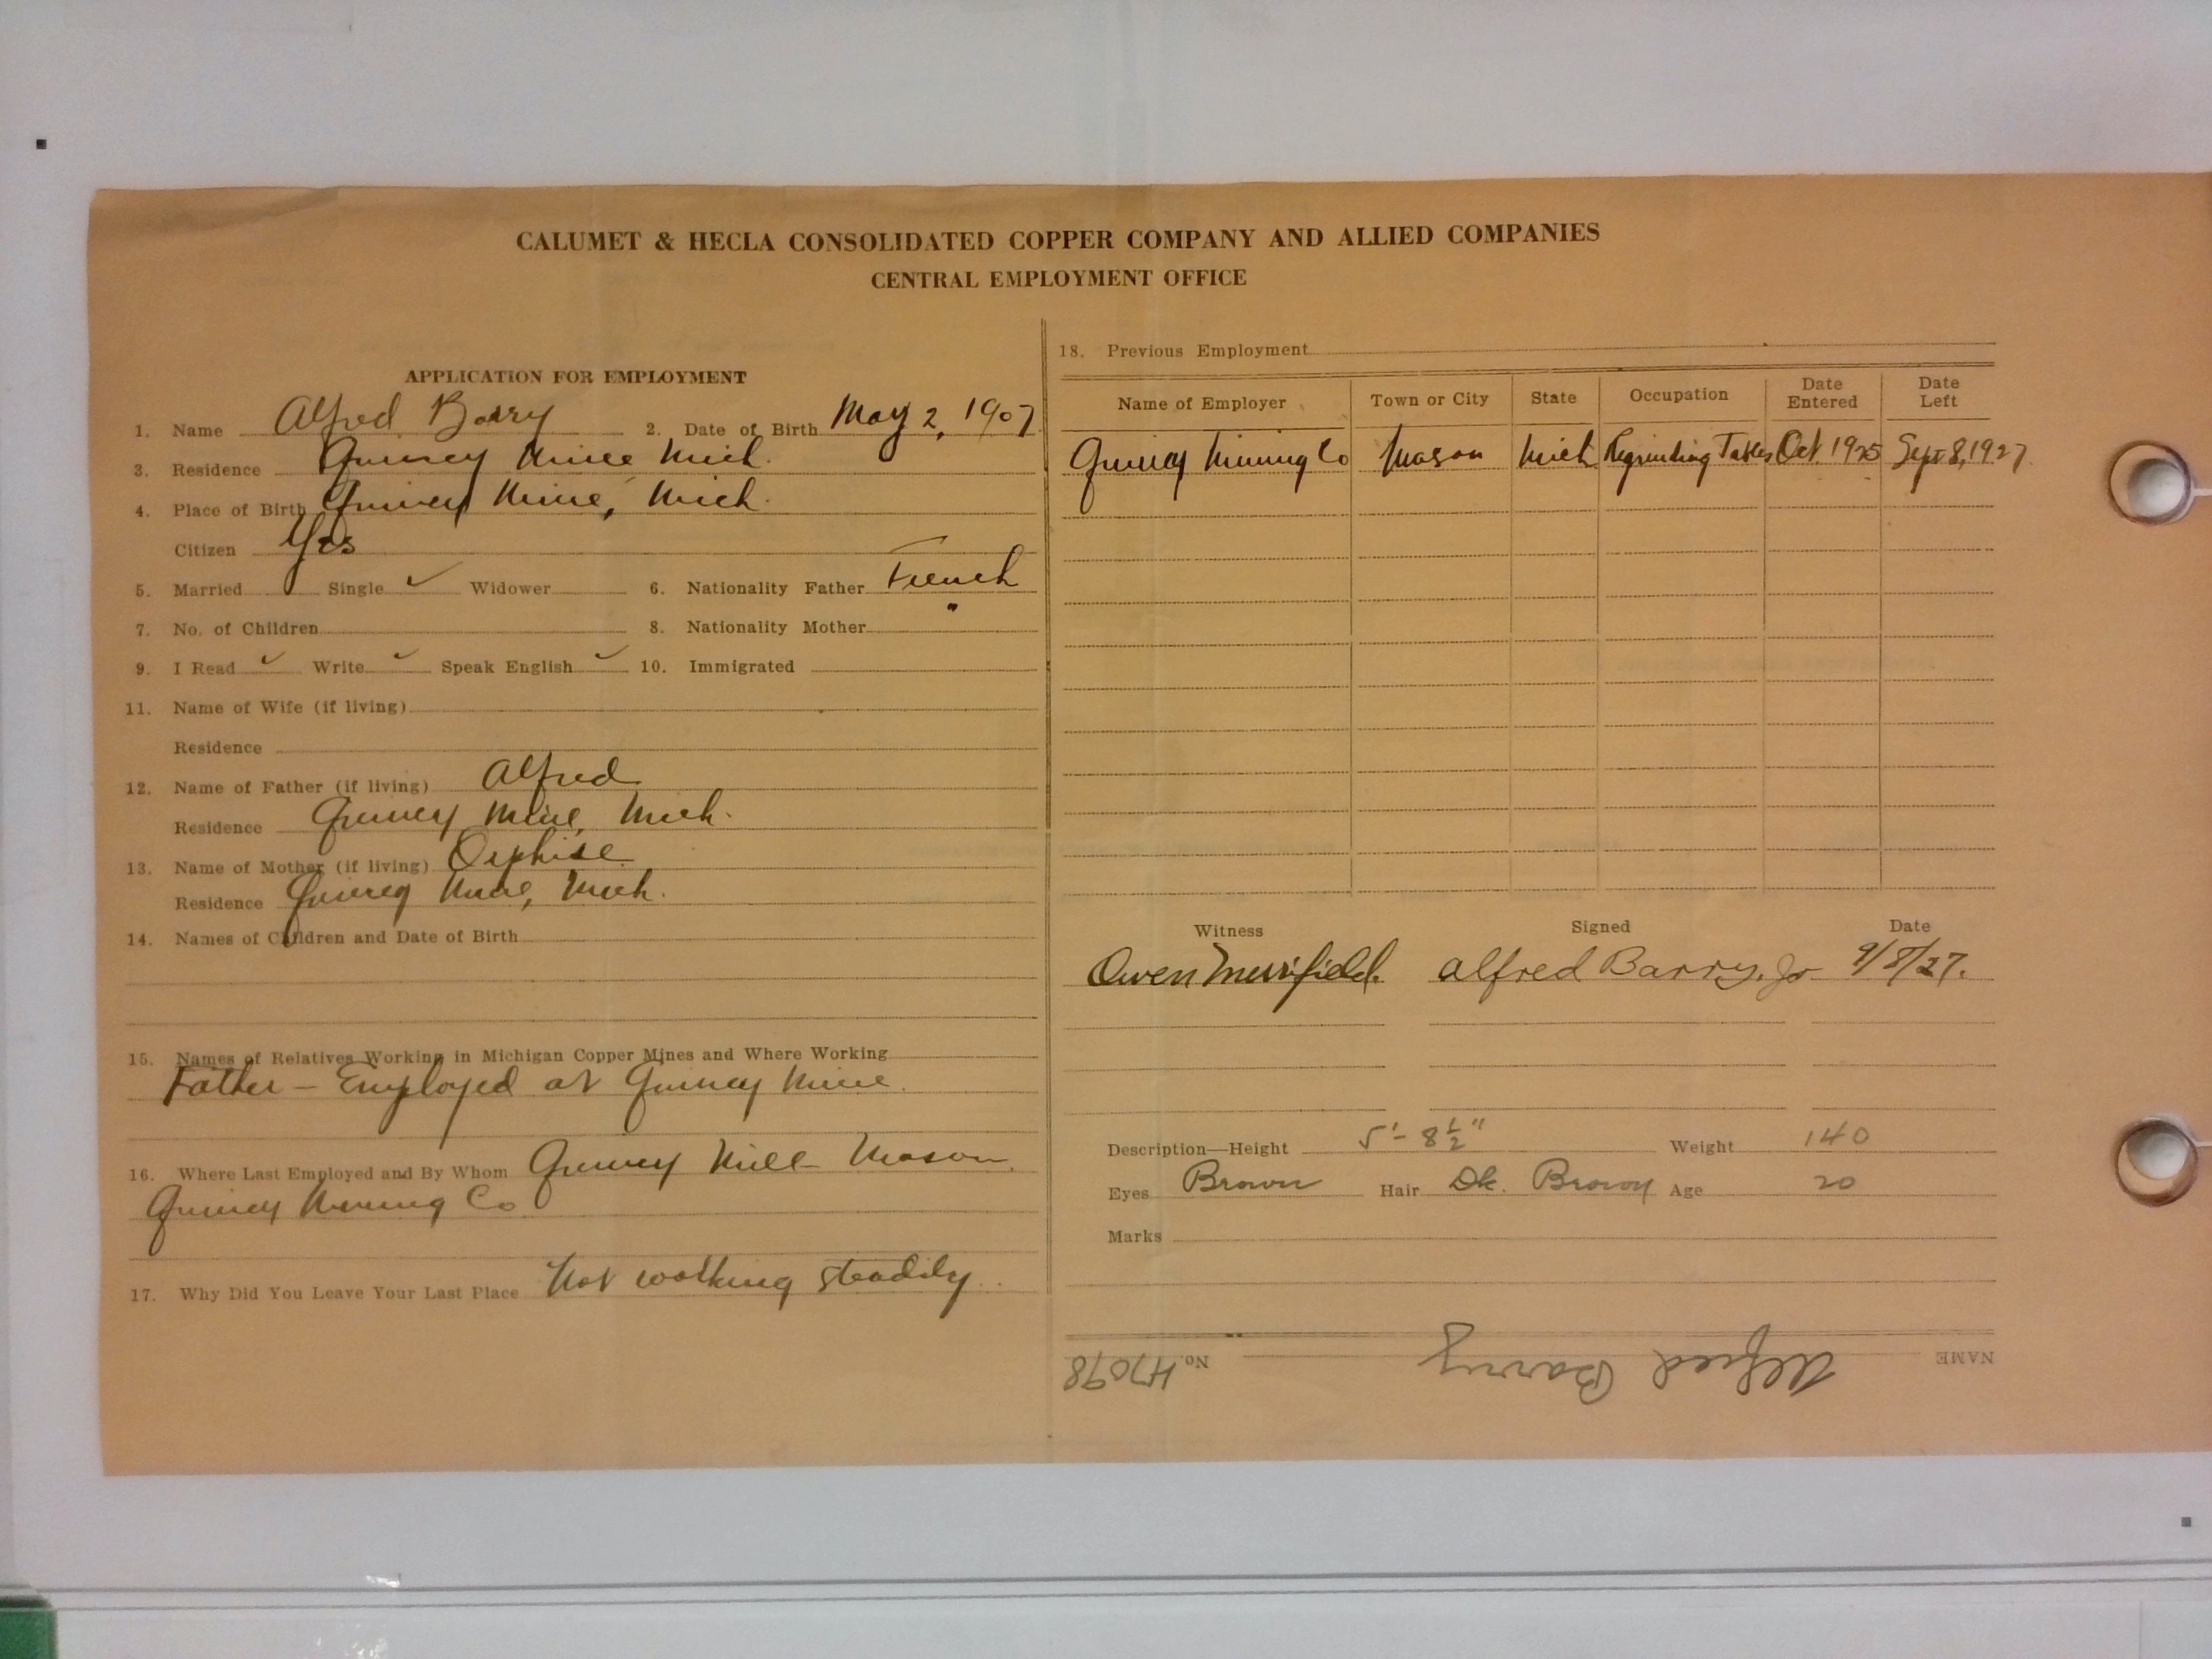 CALUMET & HECLA CONSOLIDATED COPPER COMPANY AND ALLIED COMPANIES
CENTRAL EMPLOYMENT OFFICE
APPLICATION FOR EMPLOYMENT
1. Name Alfred Barry 2. Date of Birth May 2, 1907
3. Residence Quincy Mine Mich.
4. Place of Birth Quincy Mine, Mich.
Citizen Yes
5. Married Single ✓ Widower 6. Nationality Father French
7. No. of Children 8. Nationality Mother "
9. I Read ✓ Write ✓ Speak English ✓ 10. Immigrated
11. Name of Wife (if living)
Residence
12. Name of Father (if living) Alfred
Residence Quincy Mine, Mich.
13. Name of Mother (if living) Orphise
Residence Quincy Mine, Mich.
14. Names of Children and Date of Birth
15. Names of Relatives Working in Michigan Copper Mines and Where Working
Father – Employed at Quincy Mine.
16. Where Last Employed and By Whom Quincy Mill Mason,
Quincy Mining Co
17. Why Did You Leave Your Last Place Not working steadily.
18. Previous Employment
Name of Employer Town or City State Occupation Date Entered Date Left
Quincy Mining Co Mason Mich Regrinding Tables Oct. 1925 Sept 8, 1927.
Witness Signed Date
Owen Merrifield. Alfred Barry, Jr 9/8/27.
Description—Height 5'- 8 1/2" Weight 140
Eyes Brown Hair Dk. Brown Age 20
Marks
NAME Alfred Barry No. H7098